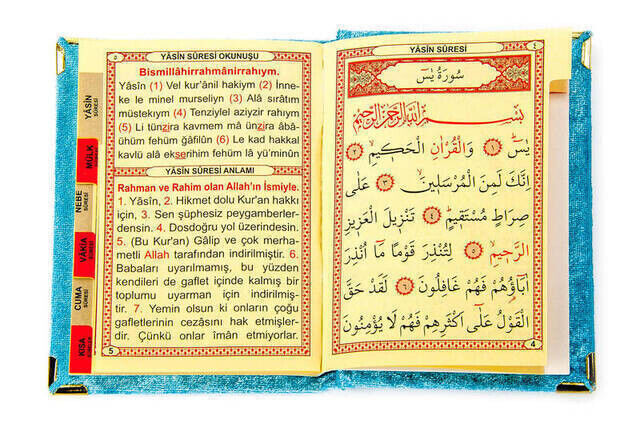 ٥
YÂSİN SÛRESİ OKUNUŞU
Bismillâhirrahmânirrahıym.
Yâsîn (1) Vel kur'ânil hakiym (2) İnne-
ke le minel murseliyn (3) Alâ sırâtım
müstekıym (4) Tenziylel aziyzir rahıym
(5) Li tünzira kavmem mâ ünzira âbâ-
ühüm fehüm gâfilûn (6) Le kad hakkal
kavlü alâ ekserihim fehüm lâ yü'minûn
YÂSİN SÛRESİ ANLAMI
Rahman ve Rahim olan Allah'ın İsmiyle.
1. Yâsîn, 2. Hikmet dolu Kur'an hakkı
için, 3. Sen şüphesiz peygamberler-
densin. 4. Dosdoğru yol üzerindesin.
5. (Bu Kur'an) Gâlip ve çok merha-
metli Allah tarafından indirilmiştir. 6.
Babaları uyarılmamış, bu yüzden
kendileri de gaflet içinde kalmış bir
toplumu uyarman için indirilmiş-
tir. 7. Yemin olsun ki onların çoğu
gafletlerinin cezasını hak etmişler-
dir. Çünkü onlar îmân etmiyorlar.
5
YÂSİN
SÛRESİ
MÜLK
SÛRESİ
NEBE
SÛRESİ
VÂKIA
SÛRESİ
CUMA
SÛRESİ
KISA
SÛRELER
YÂSİN SÛRESİ
٤
سُورَةُ يٰسٓ
بِسْمِ اللّٰهِ الرَّحْمٰنِ الرَّحِيمِ
يٰسٓ ﴿١﴾ وَالْقُرْاٰنِ الْحَكِيمِ ﴿٢﴾
اِنَّكَ لَمِنَ الْمُرْسَلِينَ ﴿٣﴾ عَلٰى
صِرَاطٍ مُسْتَقِيمٍ ﴿٤﴾ تَنْزِيلَ الْعَزِيزِ
الرَّحِيمِ ﴿٥﴾ لِتُنْذِرَ قَوْمًا مَٓا اُنْذِرَ
اٰبَٓاؤُهُمْ فَهُمْ غَافِلُونَ ﴿٦﴾ لَقَدْ حَقَّ
الْقَوْلُ عَلٰٓى اَكْثَرِهِمْ فَهُمْ لَا يُؤْمِنُونَ
4